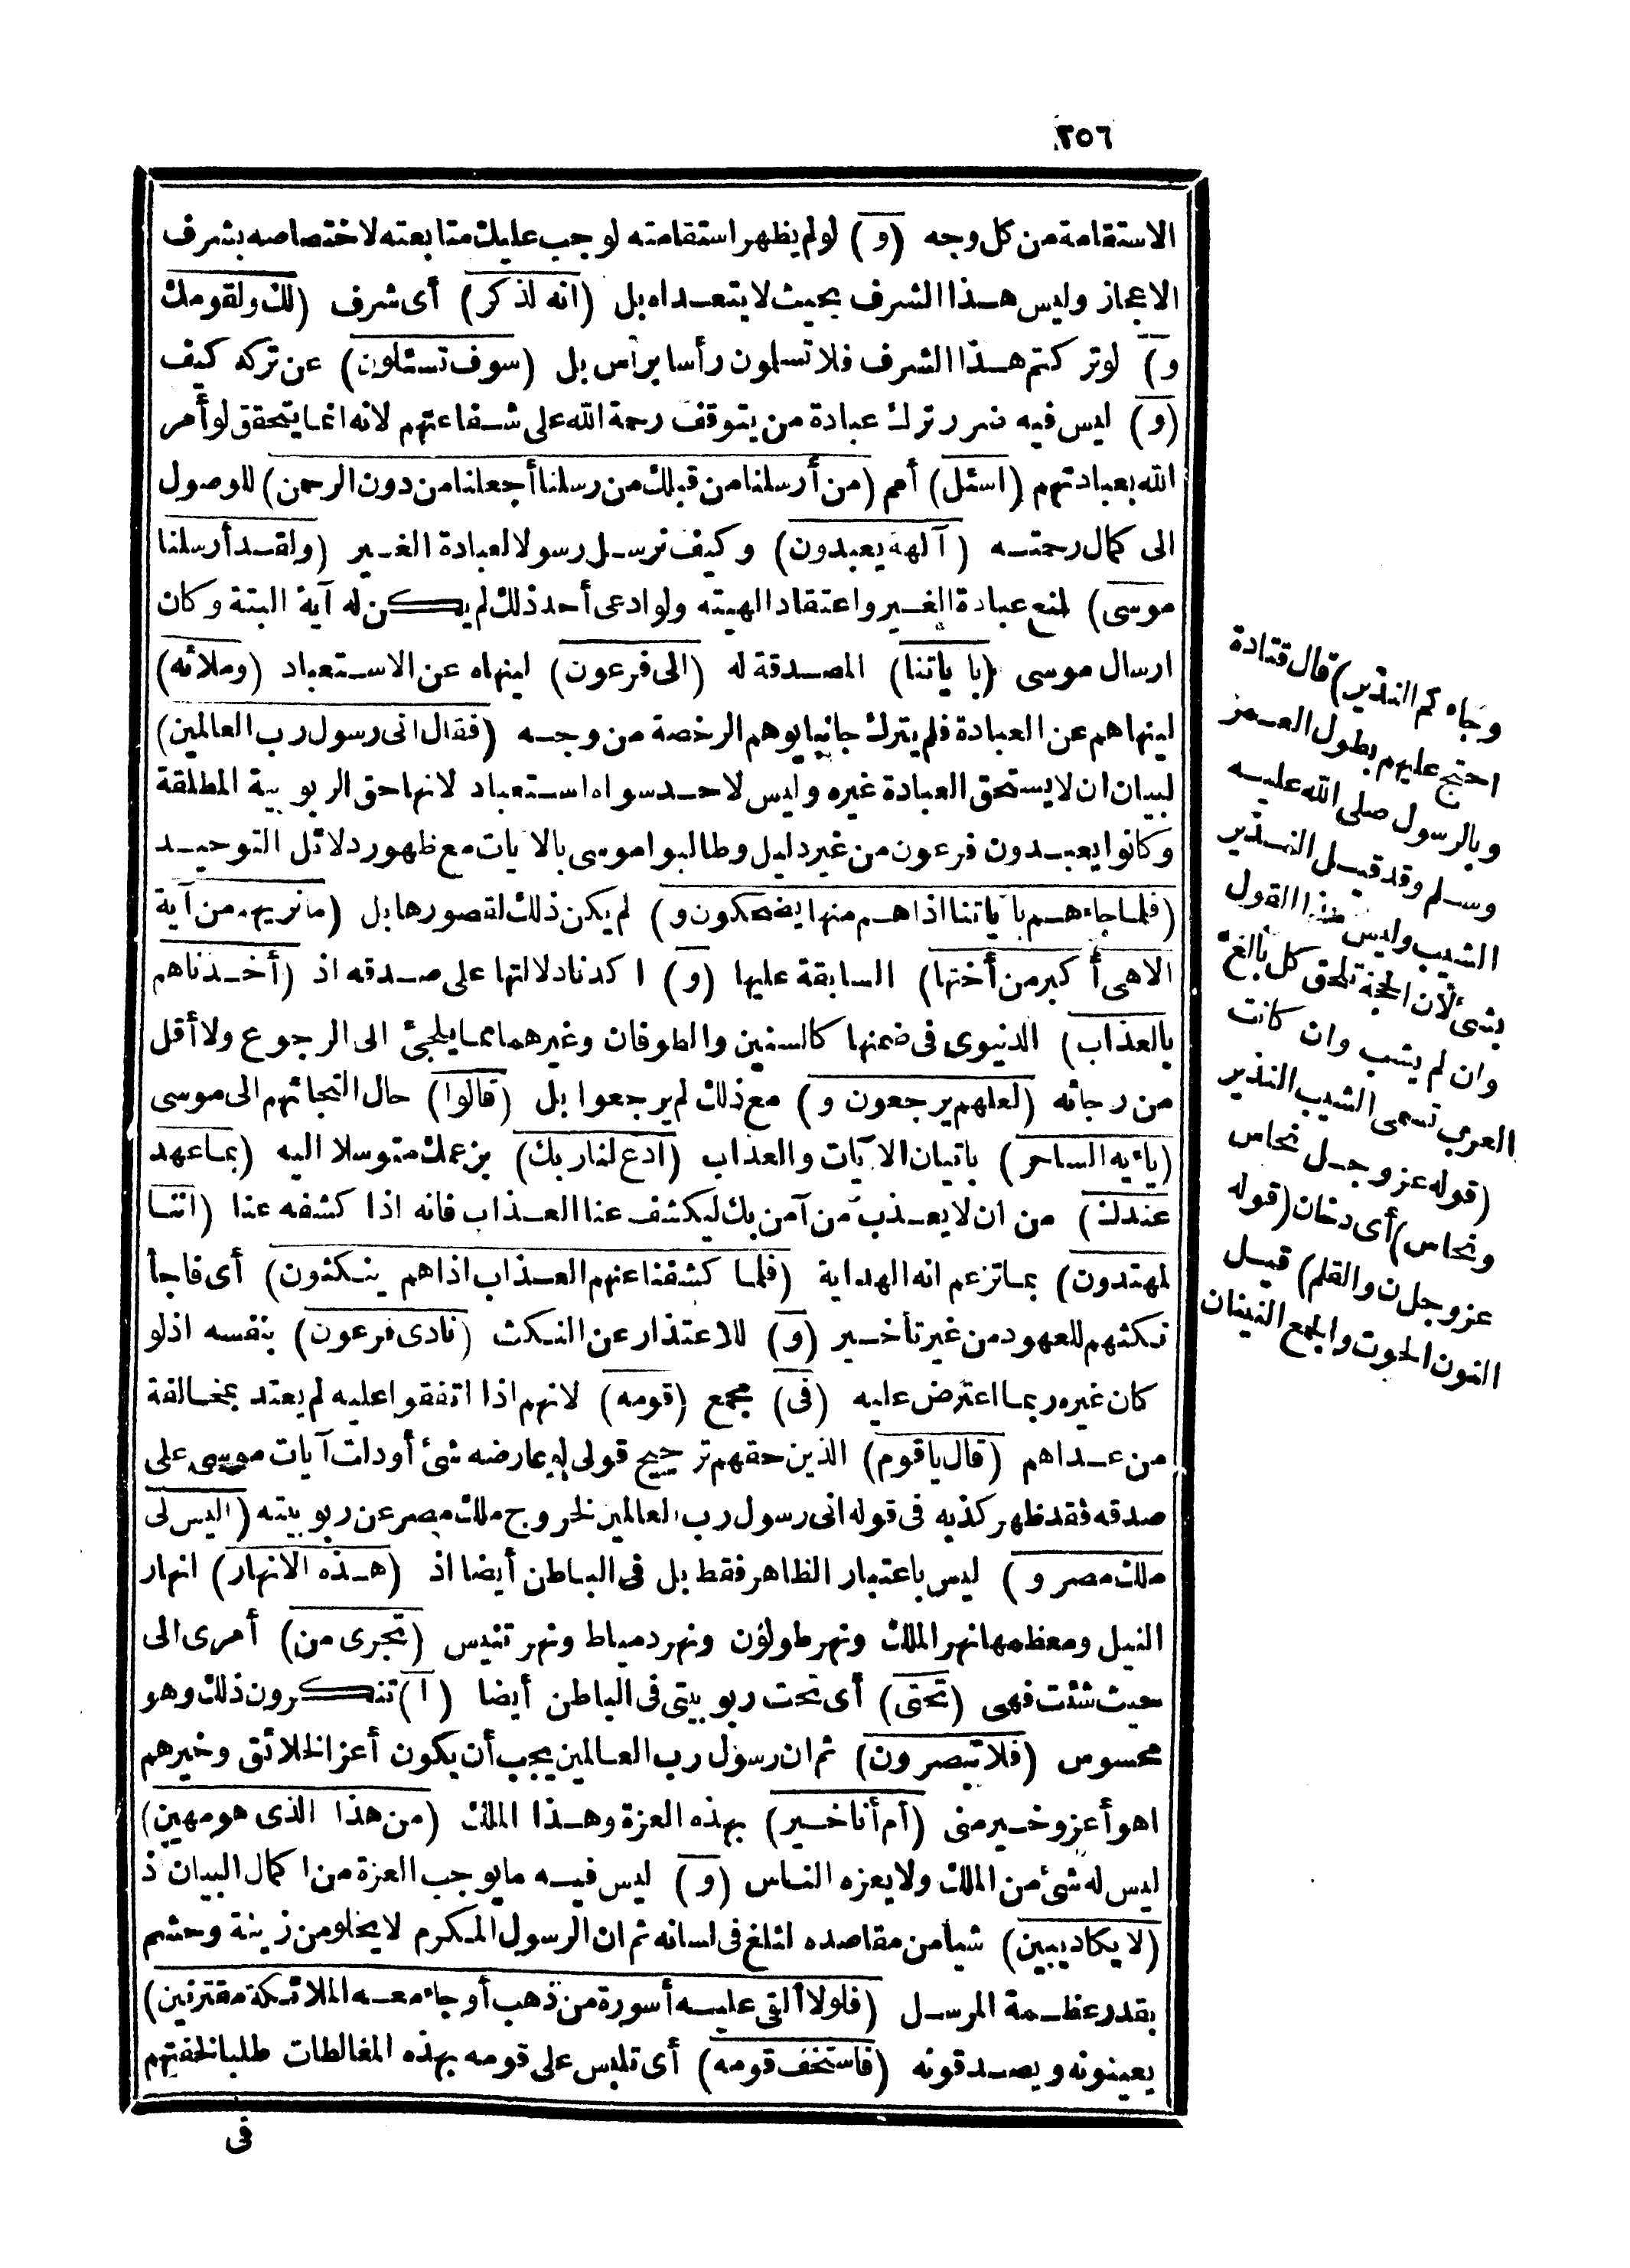 ٢٥٦
الاستقامة من كل وجه (و) لو لم يظهر استقامته لوجب عليك متابعته لاختصاصه بشرف
الاعجاز وليس هذا الشرف بحيث لا يتعداه بل (انه لذكر) أى شرف (لك ولقومك
و) لو تركتم هذا الشرف فلا تسلمون رأسا برأس بل (سوف تسئلون) عن تركه كيف
(و) ليس فيه ضرر ترك عبادة من يتوقف رحمة الله على شفاعتهم لانه انما يتحقق لو أمر
الله بعبادتهم (اسئل) أمم (من أرسلنا من قبلك من رسلنا أجعلنا من دون الرحمن) للوصول
الى كمال رحمته (آلهة يعبدون) وكيف نرسل رسولا لعبادة الغير (ولقد أرسلنا
موسى) لمنع عبادة الغير واعتقاد الهيته ولو ادعى أحد ذلك لم يكن له آية البتة وكان
ارسال موسى (بآياتنا) المصدقة له (الى فرعون) لينهاه عن الاستعباد (وملائه)
لينهاهم عن العبادة فلم يترك جانبا يوهم الرخصة من وجه (فقال انى رسول رب العالمين)
لبيان ان لا يستحق العبادة غيره وليس لاحد سواه استعباد لانها حق الربوبية المطلقة
وكانوا يعبدون فرعون من غير دليل وطالبوا موسى بالآيات مع ظهور دلائل التوحيد
(فلما جاءهم بآياتنا اذا هم منها يضحكون و) لم يكن ذلك لقصورها بل (ما نريهم من آية
الا هى أكبر من أختها) السابقة عليها (و) اكدنا دلالتها على صدقه اذ (أخذناهم
بالعذاب) الدنيوى فى ضمنها كالسنين والطوفان وغيرهما مما يلجئ الى الرجوع ولا أقل
من رجائه (لعلهم يرجعون و) مع ذلك لم يرجعوا بل (قالوا) حال التجائهم الى موسى
(يا ءيه الساحر) باتيان الآيات والعذاب (ادع لنا ربك) بزعمك متوسلا اليه (بما عهد
عندك) من ان لا يعذب من آمن بك ليكشف عنا العذاب فانه اذا كشفه عنا (اننا
لمهتدون) بما تزعم انه الهداية (فلما كشفنا عنهم العذاب اذا هم ينكثون) أى فاجأ
نكثهم للعهود من غير تأخير (و) للاعتذار عن النكث (نادى فرعون) بنفسه اذ لو
كان غيره ربما اعترض عليه (فى) مجمع (قومه) لانهم اذا اتفقوا عليه لم يعتد بمخالفة
من عداهم (قال يا قوم) الذين حقهم ترجيح قولى لو عارضه شئ أو دلت آيات موسى على
صدقه فقد ظهر كذبه فى قوله انى رسول رب العالمين لخروج ملك مصر عن ربوبيته (اليس لى
ملك مصر و) ليس باعتبار الظاهر فقط بل فى الباطن أيضا اذ (هذه الانهار) انهار
النيل ومعظمها نهر الملك ونهر طولون ونهر دمياط ونهر تنيس (تجرى من) أمرى الى
حيث شئت فهى (تحتى) أى تحت ربوبيتى فى الباطن أيضا (ا) تنكرون ذلك وهو
محسوس (فلا تبصرون) ثم ان رسول رب العالمين يجب أن يكون أعز الخلائق وخيرهم
اهو أعز وخير منى (أم أنا خير) بهذه العزة وهذا الملك (من هذا الذى هو مهين)
ليس له شئ من الملك ولا يعزه الناس (و) ليس فيه ما يوجب العزة من اكمال البيان ذ
(لا يكاد يبين) شيأ من مقاصده لثلغ فى لسانه ثم ان الرسول المكرم لا يخلو من زينة وحشم
بقدر عظمة المرسل (فلولا ألقى عليه أسورة من ذهب أو جاء معه الملائكة مقترنين)
يعينونه ويصدقونه (فاستخف قومه) أى تلبس على قومه بهذه المغالطات طلبا لخفتهم
فى
وجاءكم النذير) قال قتادة
احتج عليهم بطول العمر
وبالرسول صلى الله عليه
وسلم وقد قيل النذير
الشيب وليس هذا القول
بشئ لأن الحجة تلحق كل بالغ
وان لم يشب وان كانت
العرب تسمى الشيب النذير
(قوله عز وجل نحاس
ونحاس) أى دخان (قوله
عز وجل ن والقلم) قيل
النون الحوت والجمع النينان